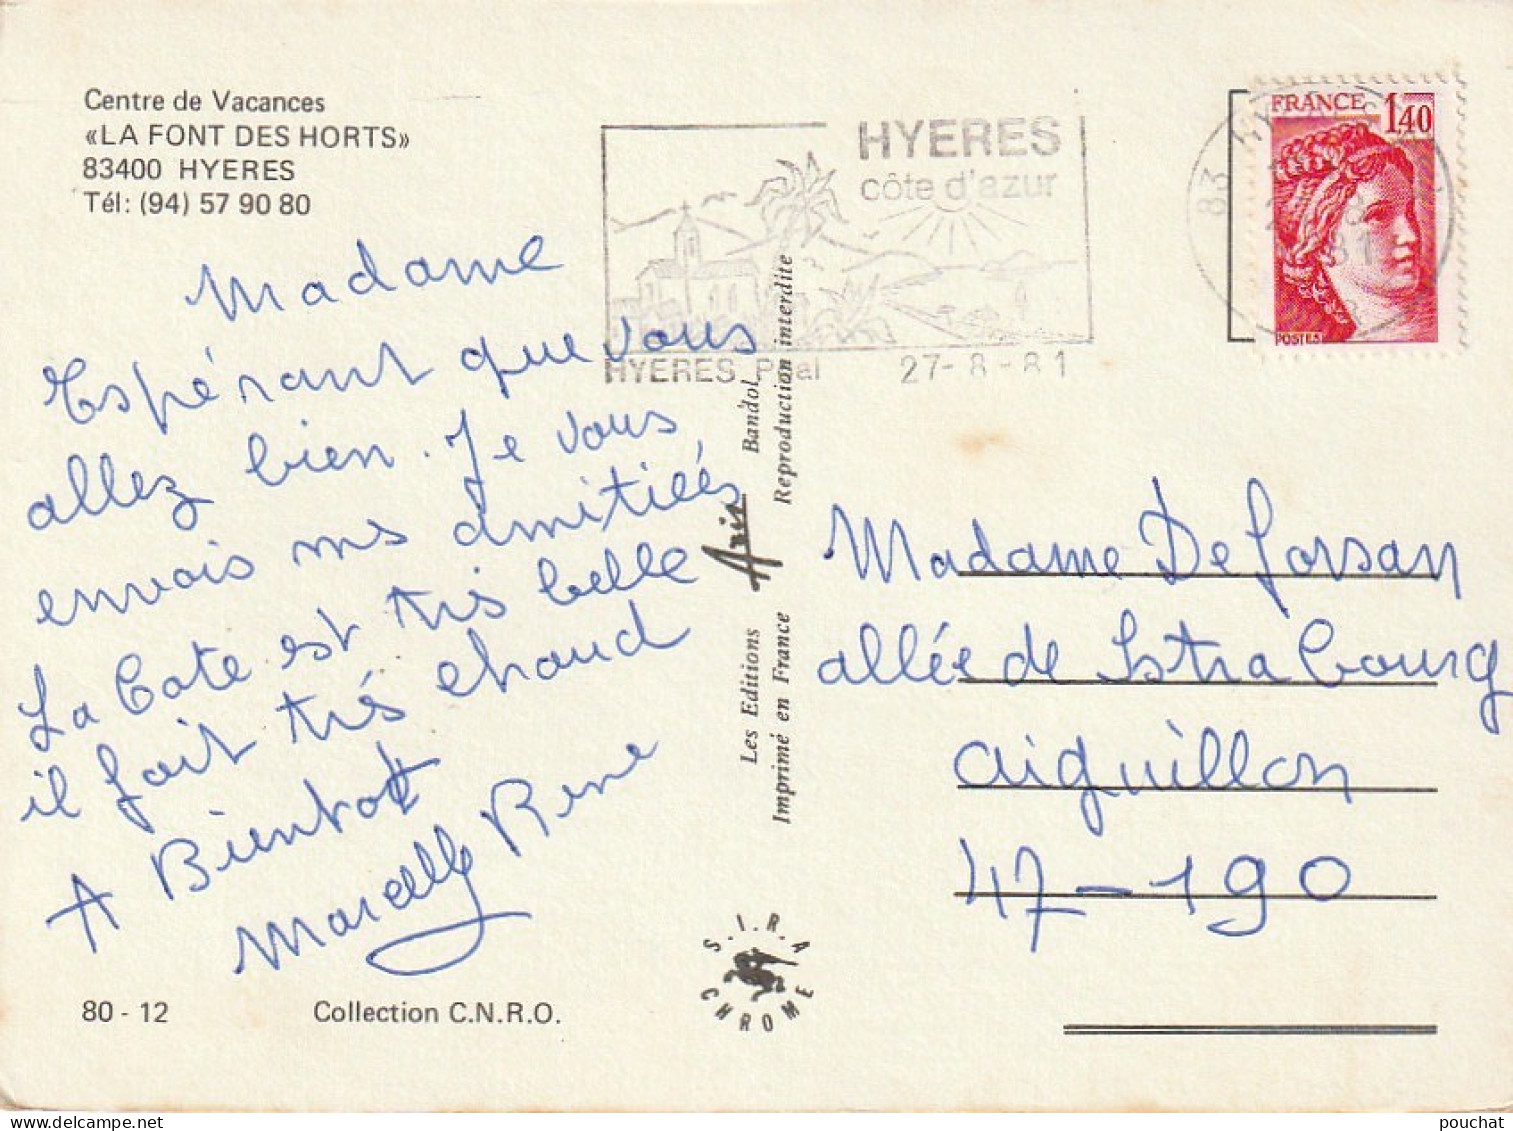 Centre de Vacances
«LA FONT DES HORTS»
83400 HYERES
Tél: (94) 57 90 80
Madame
Espérant que vous
allez bien. Je vous
envois mes amitiées
La Cote est très belle
il fait très chaud
A Bientot
Marcelle Rene
80 - 12
Collection C.N.R.O.
HYERES
côte d'azur
HYERES Ppal 27-8-81
Les Editions Aris Bandol
Imprimé en France Reproduction interdite
S.I.R.A
CHROME
FRANCE 1,40
POSTES
83
81
Madame De forsan
allée de Strabourg
aiguillon
47-190
pouchat